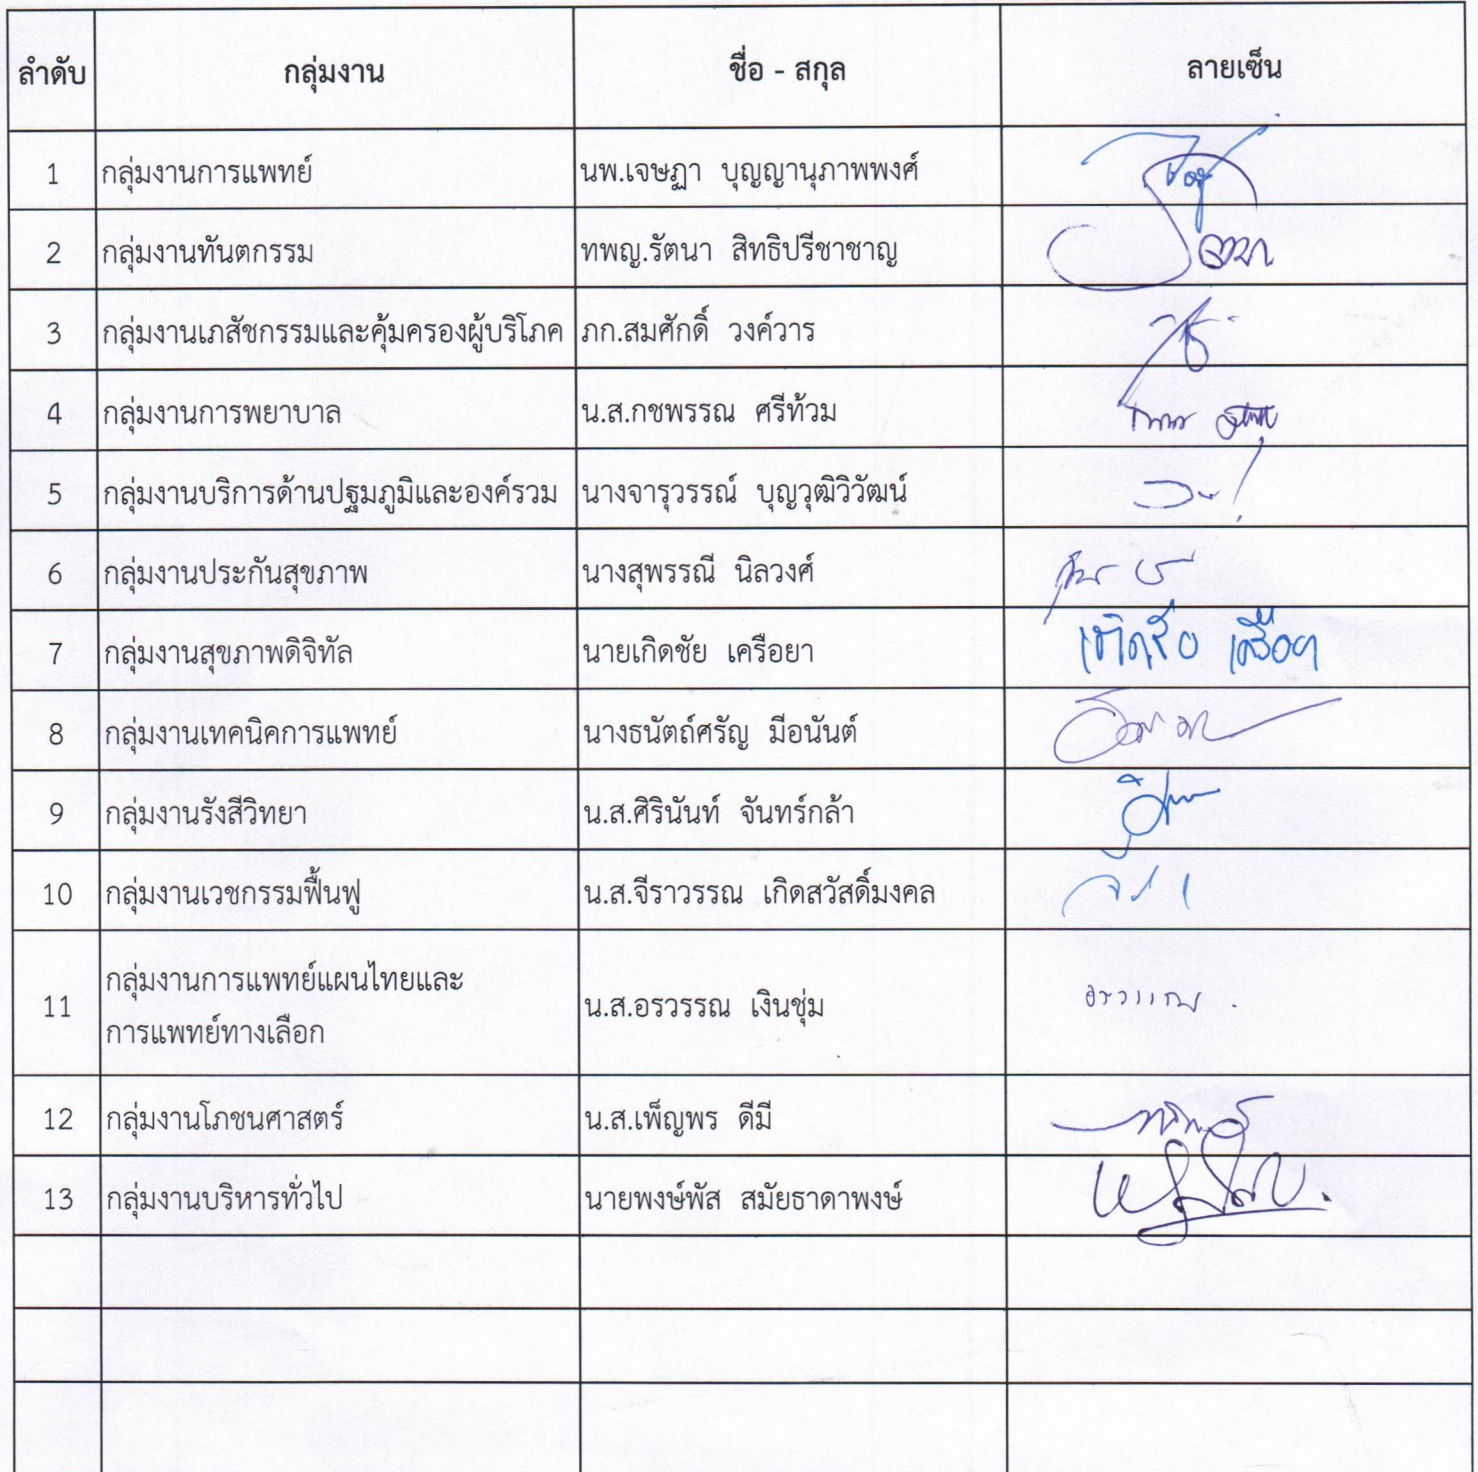 ลำดับ กลุ่มงาน ชื่อ - สกุล ลายเซ็น
1 กลุ่มงานการแพทย์ นพ.เจษฏา บุญญานุภาพพงศ์
2 กลุ่มงานทันตกรรม ทพญ.รัตนา สิทธิปรีชาชาญ
3 กลุ่มงานเภสัชกรรมและคุ้มครองผู้บริโภค ภก.สมศักดิ์ วงค์วาร
4 กลุ่มงานการพยาบาล น.ส.กชพรรณ ศรีท้วม
5 กลุ่มงานบริการด้านปฐมภูมิและองค์รวม นางจารุวรรณ์ บุญวุฒิวิวัฒน์
6 กลุ่มงานประกันสุขภาพ นางสุพรรณี นิลวงศ์
7 กลุ่มงานสุขภาพดิจิทัล นายเกิดชัย เครือยา เกิดชัย เครือยา
8 กลุ่มงานเทคนิคการแพทย์ นางธนัตถ์ศรัญ มีอนันต์
9 กลุ่มงานรังสีวิทยา น.ส.ศิรินันท์ จันทร์กล้า
10 กลุ่มงานเวชกรรมฟื้นฟู น.ส.จีราวรรณ เกิดสวัสดิ์มงคล
11 กลุ่มงานการแพทย์แผนไทยและ
การแพทย์ทางเลือก น.ส.อรวรรณ เงินชุ่ม อรวรรณ
12 กลุ่มงานโภชนศาสตร์ น.ส.เพ็ญพร ดีมี
13 กลุ่มงานบริหารทั่วไป นายพงษ์พัส สมัยธาดาพงษ์